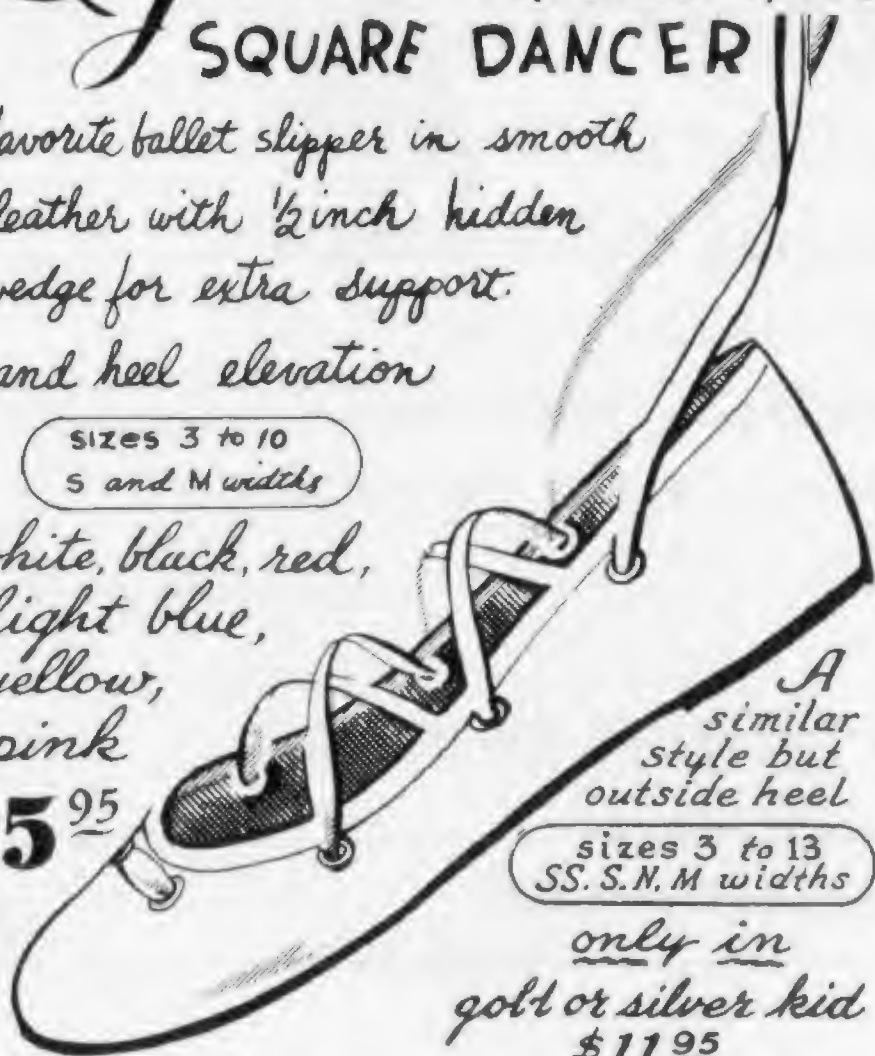 SQUARE DANCER
avorite ballet slipper in smooth
leather with ½ inch hidden
edge for extra support.
and heel elevation
sizes 3 to 10
S and M widths
hite, black, red,
light blue,
yellow,
pink
5 95
A
similar
style but
outside heel
sizes 3 to 13
SS. S. N. M widths
only in
gold or silver kid
$11 95